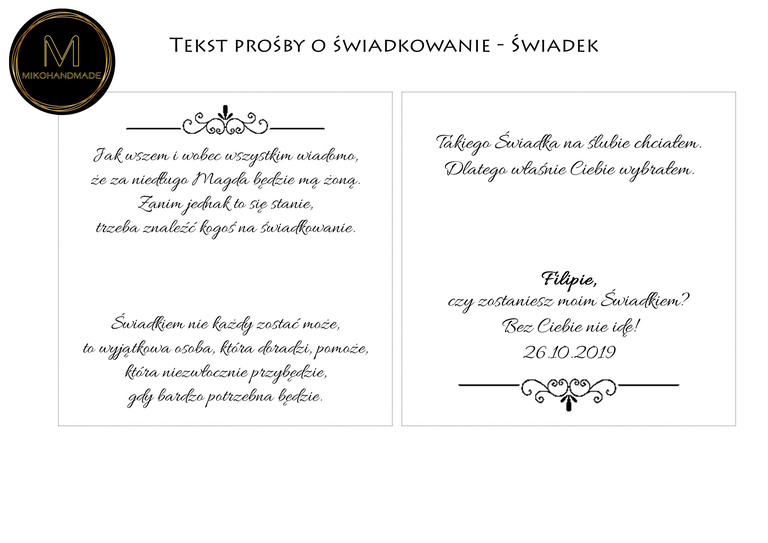 M
MIKOHANDMADE
Tekst prośby o świadkowanie - Świadek
Jak wszem i wobec wszystkim wiadomo,
że za niedługo Magda będzie mą żoną.
Zanim jednak to się stanie,
trzeba znaleźć kogoś na świadkowanie.
Świadkiem nie każdy zostać może,
to wyjątkowa osoba, która doradzi, pomoże,
która niezwłocznie przybędzie,
gdy bardzo potrzebna będzie.
Takiego Świadka na ślubie chciałem.
Dlatego właśnie Ciebie wybrałem.
Filipie,
czy zostaniesz moim Świadkiem?
Bez Ciebie nie idę!
26.10.2019